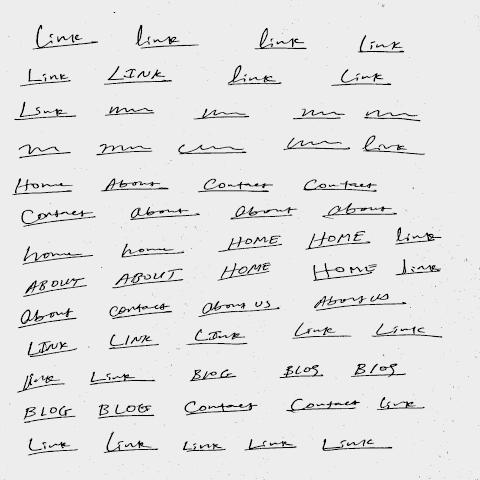 Link link link Link
Link LINK link Link
Link
link
Home About Contact Contact
Contact about About about
home home HOME HOME link
ABOUT ABOUT HOME HOME link
About contact About us About us
LINK LINK LINK Link Link
link Link BLOG BLOg BLOg
BLOG BLOG Contact Contact link
Link Link Link Link Link